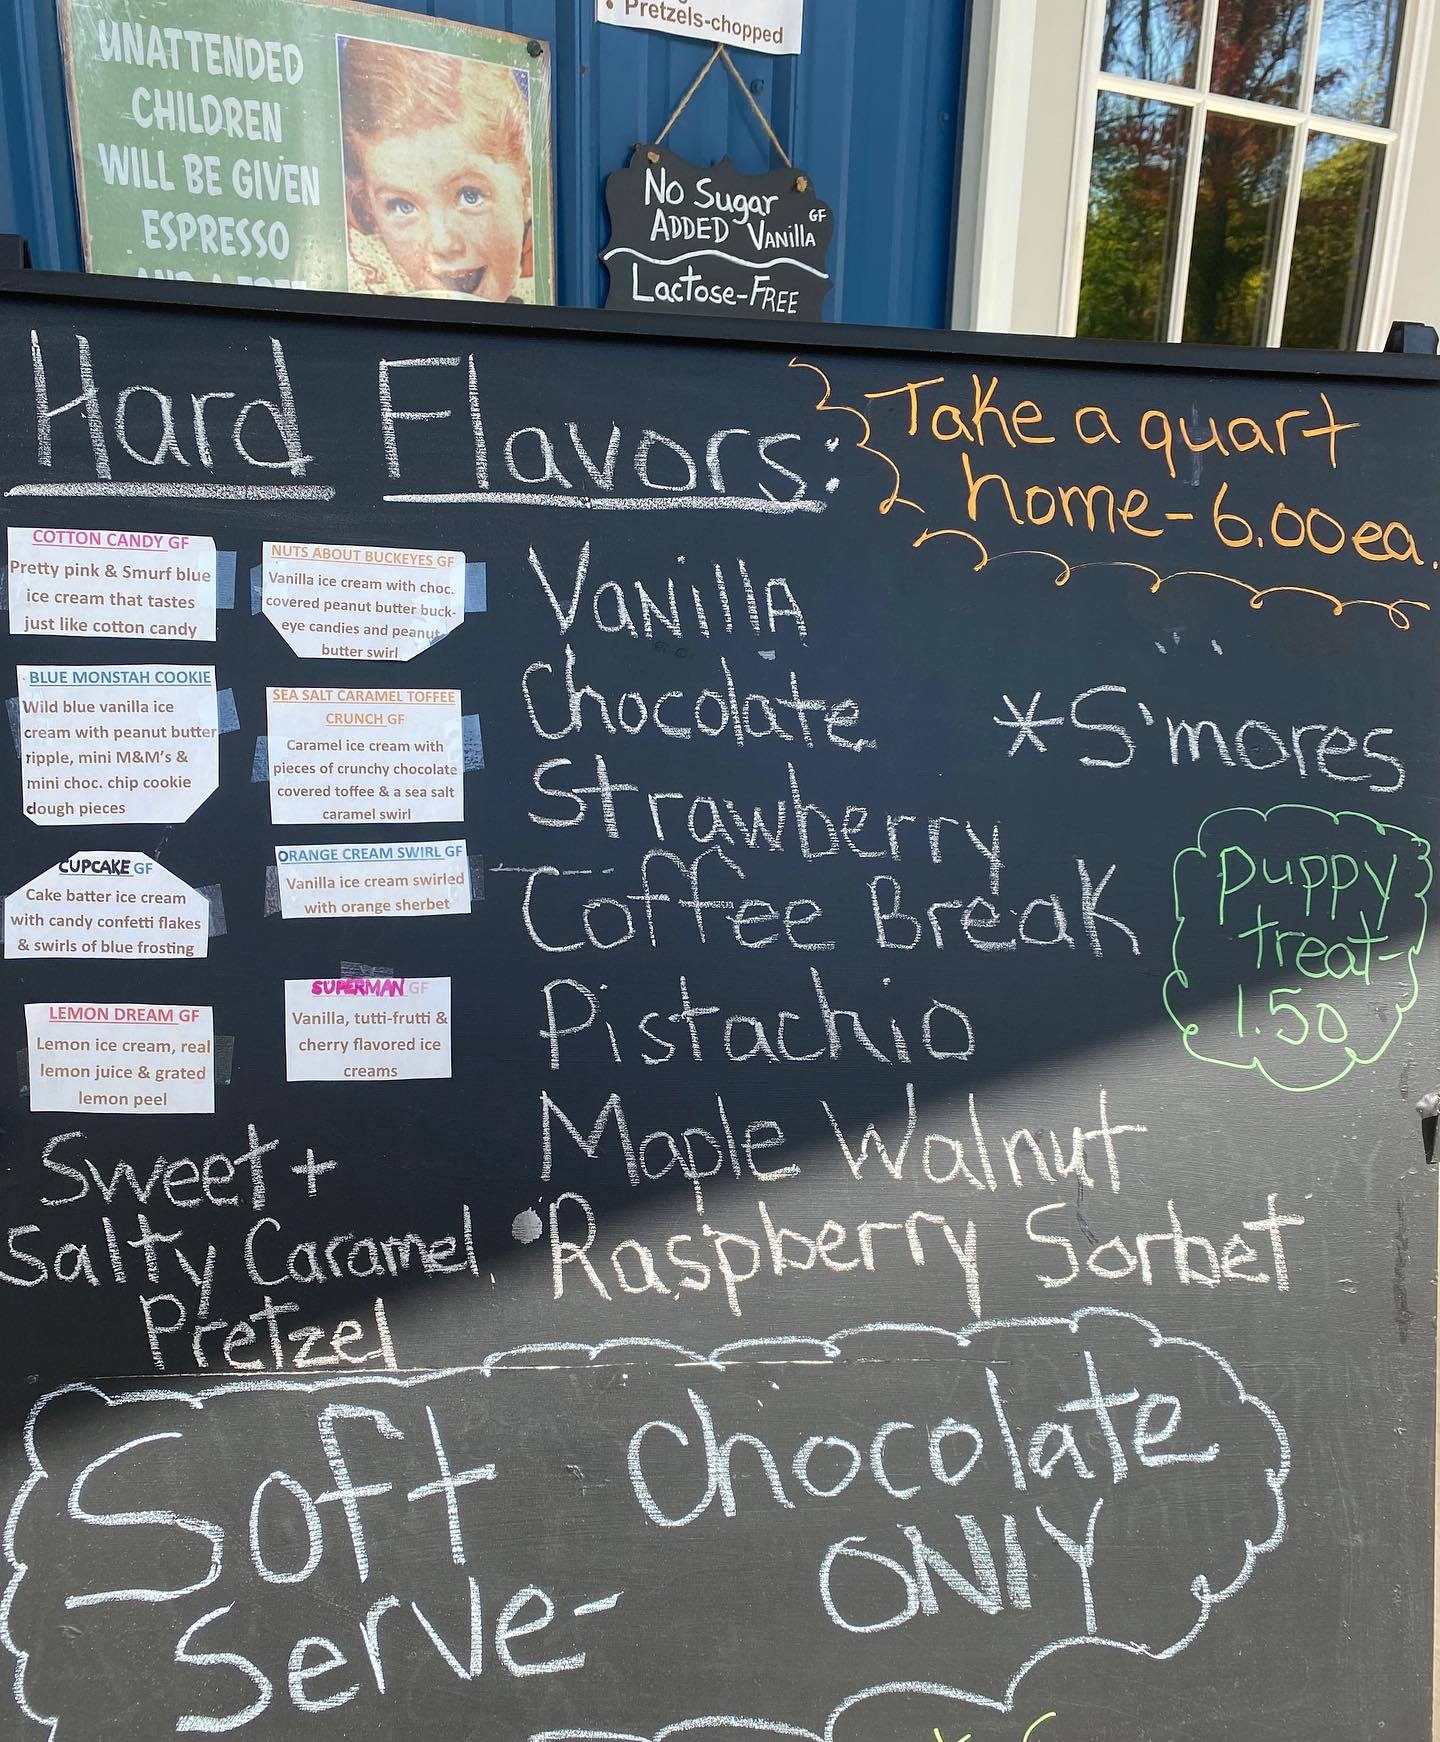 • Pretzels-chopped
UNATTENDED
CHILDREN
WILL BE GIVEN
ESPRESSO
AND A FREE
No Sugar
ADDED Vanilla GF
Lactose-FREE
Hard Flavors:
Take a quart
home - 6.00 ea.
COTTON CANDY GF
Pretty pink & Smurf blue
ice cream that tastes
just like cotton candy
BLUE MONSTAH COOKIE
Wild blue vanilla ice
cream with peanut butter
ripple, mini M&M's &
mini choc. chip cookie
dough pieces
CUPCAKE GF
Cake batter ice cream
with candy confetti flakes
& swirls of blue frosting
LEMON DREAM GF
Lemon ice cream, real
lemon juice & grated
lemon peel
Sweet +
Salty Caramel
Pretzel
NUTS ABOUT BUCKEYES GF
Vanilla ice cream with choc.
covered peanut butter buck-
eye candies and peanut
butter swirl
SEA SALT CARAMEL TOFFEE
CRUNCH GF
Caramel ice cream with
pieces of crunchy chocolate
covered toffee & a sea salt
caramel swirl
ORANGE CREAM SWIRL GF
Vanilla ice cream swirled
with orange sherbet
SUPERMAN GF
Vanilla, tutti-frutti &
cherry flavored ice
creams
Vanilla
Chocolate
Strawberry
Coffee Break
Pistachio
Maple Walnut
Raspberry Sorbet
*S'mores
puppy
treat-
1.50
Soft
Serve-
Chocolate
ONlY